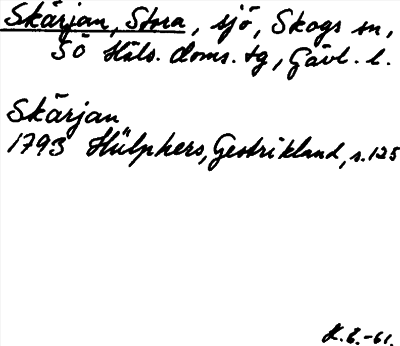 Skärjan, Stora, sjö, Skogs sn,
SÖ Häls. doms. tg, Gävl. l.
Skärjan
1793 Hülphers, Gestrikland, s. 125
K.E.-61.